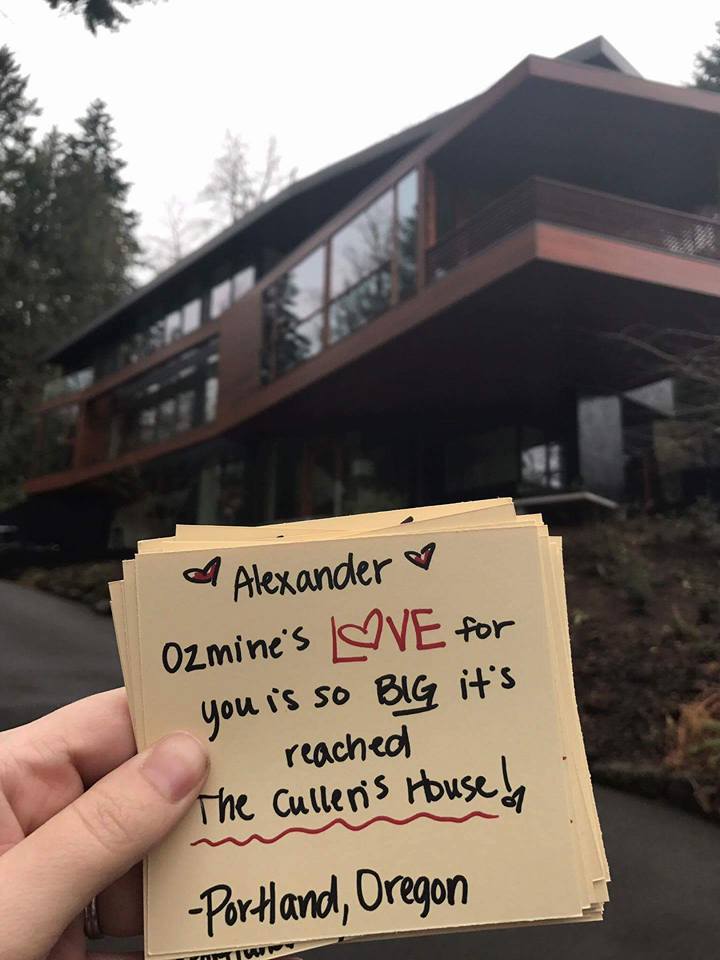 Alexander
Ozmine's LOVE for
you is so BIG it's
reached
The Cullen's House!
-Portland, Oregon